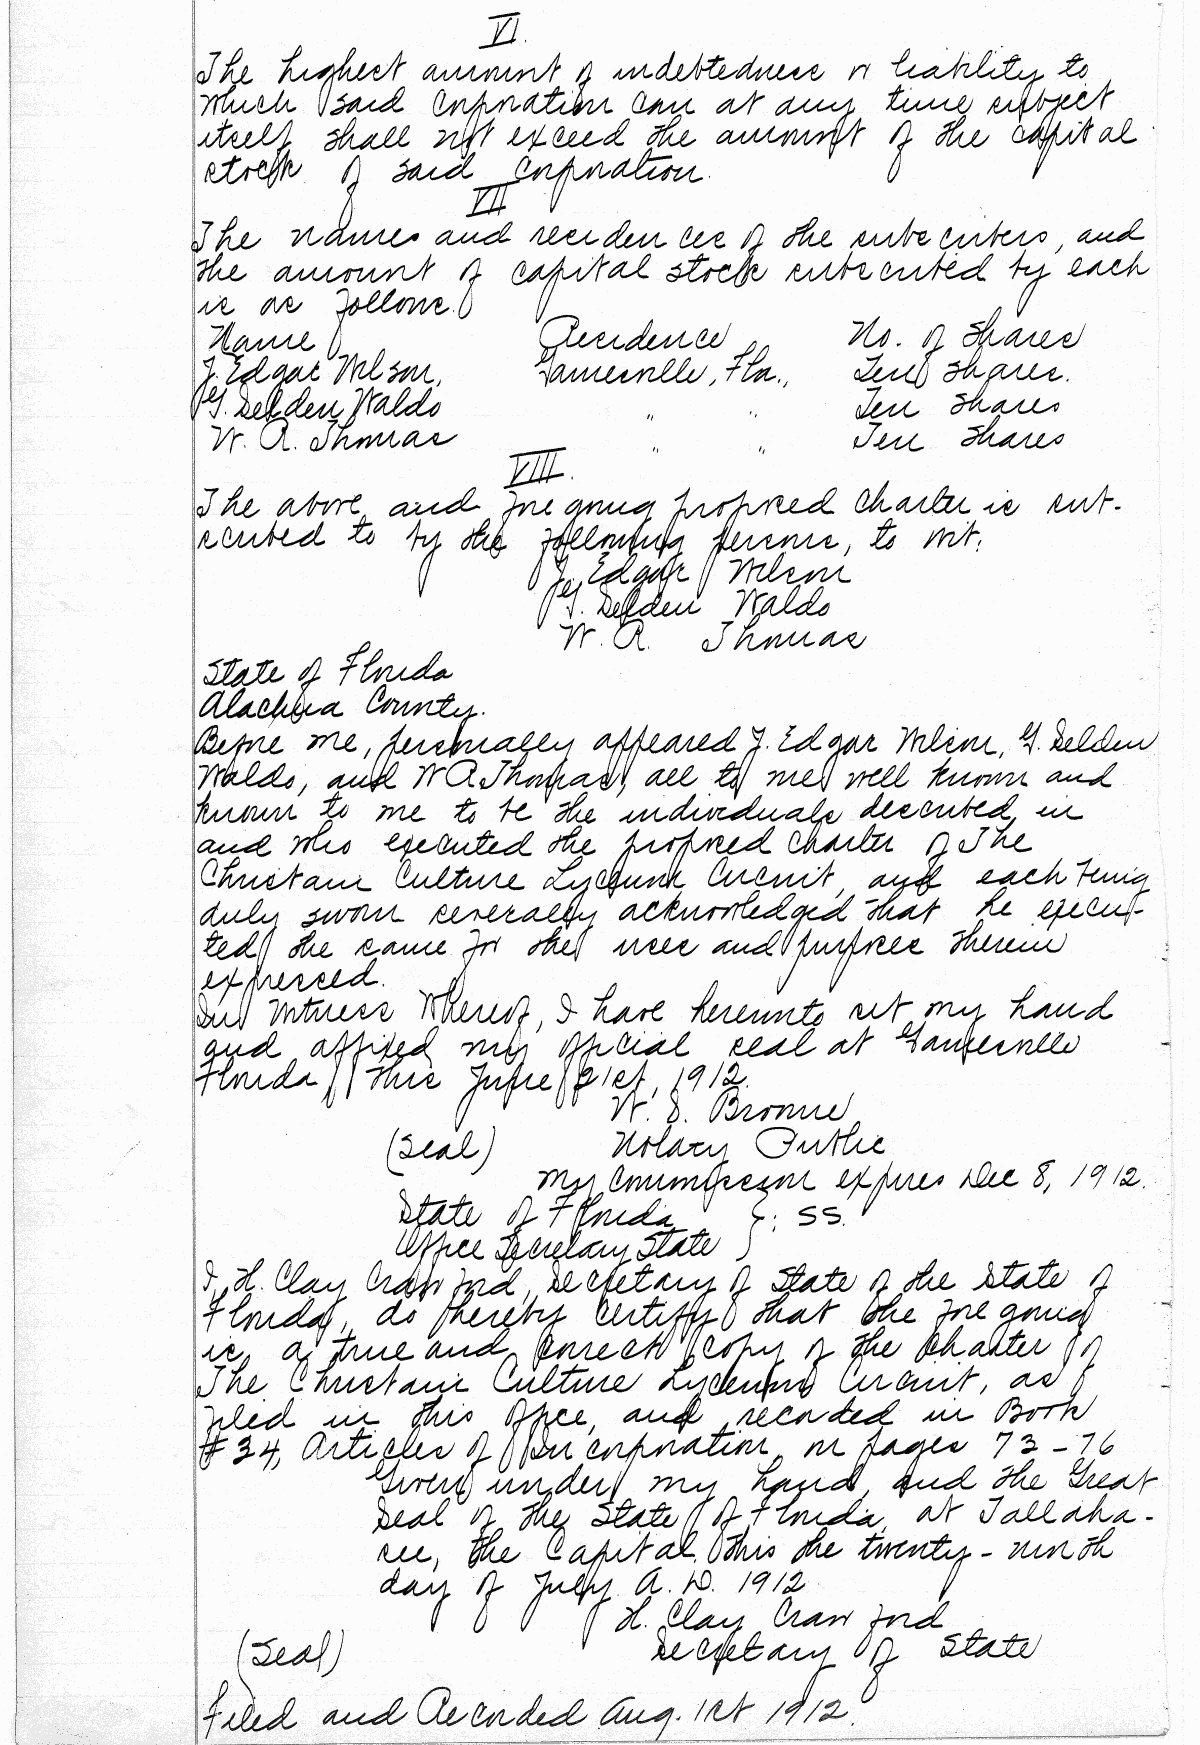 VI.
The highest amount of indebtedness or liability to
which said corporation can at any time subject
itself shall not exceed the amount of the capital
stock of said corporation.
VII
The names and residences of the subscribers, and
the amount of capital stock subscribed by each
is as follows.
Name Residence No. of Shares
J. Edgar Wilson, Gainesville, Fla., Ten shares.
G. Selden Waldo " " Ten shares
W. R. Thomas " " Ten shares
VIII.
The above and foregoing proposed charter is sub-
scribed to by the following persons, to wit:
J. Edgar Wilson
G. Selden Waldo
W. R. Thomas
State of Florida
Alachua County.
Before me, personally appeared J. Edgar Wilson, G. Selden
Waldo, and W R Thomas, all to me well known and
known to me to be the individuals described in
and who executed the proposed charter of The
Christain Culture Lyceum Circuit, and each being
duly sworn severally acknowledged that he execu-
ted the same for the uses and purposes therein
expressed.
In Witness Whereof, I have hereunto set my hand
and affixed my official seal at Gainesville
Florida this June 21st, 1912.
W. S. Broome
(Seal) Notary Public
My commission expires Dec 8, 1912.
State of Florida }: SS.
Office Secretary State
I, H. Clay Crawford, Secretary of State of the State of
Florida, do hereby certify that the foregoing
is a true and correct copy of the charter of
The Christain Culture Lyceum Circuit, as
filed in this office, and recorded in Book
#34, Articles of Incorporation, on pages 73-76
Given under my hand, and the Great
Seal of the State of Florida, at Tallaha-
see, the Capital, this the twenty-ninth
day of July A. D. 1912
H. Clay Crawford
(Seal) Secretary of State
Filed and Recorded Aug. 1st 1912.